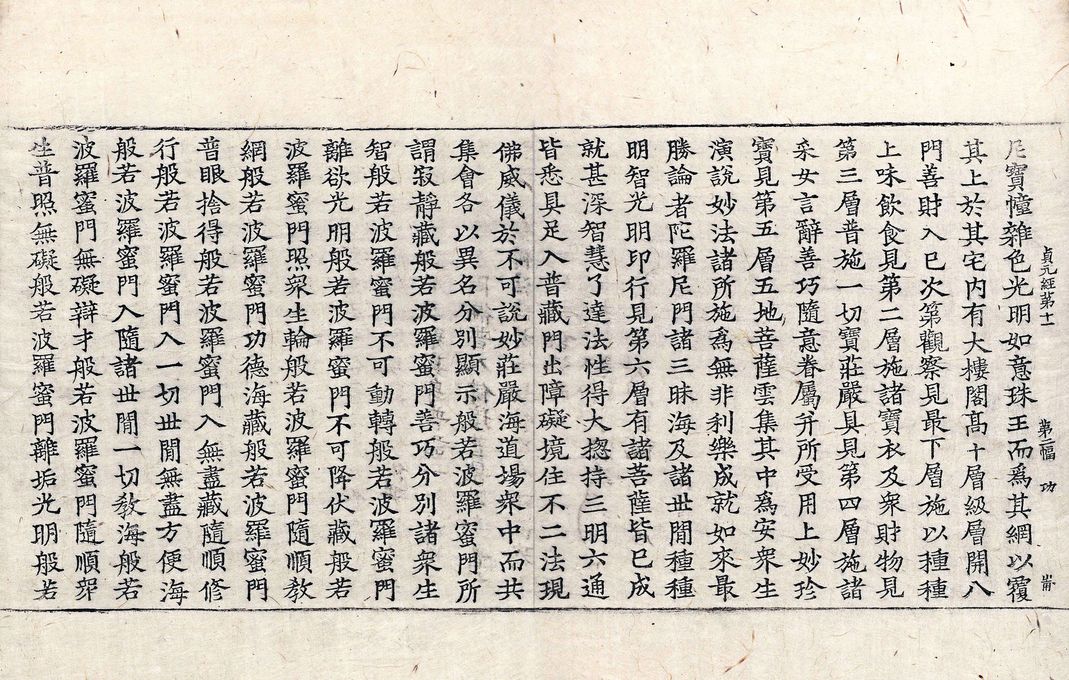 尼寶幢雜色光明如意珠王而爲其網以覆
貞元經第十一 第二幅 功
其上於其宅內有大樓閣高十層級層開八
門善財入已次第觀察見最下層施以種種
上味飲食見第二層施諸寶衣及衆財物見
第三層普施一切寶莊嚴具見第四層施諸
采女言辭善巧隨意眷屬并所受用上妙珍
寶見第五層五地菩薩雲集其中爲安衆生
演說妙法諸所施爲無非利樂成就如來最
勝論者陀羅尼門諸三昧海及諸世閒種種
明智光明印行見第六層有諸菩薩皆已成
就甚深智慧了達法性得大揔持三明六通
皆悉具足入普藏門出障礙境住不二法現
佛威儀於不可說妙莊嚴海道場衆中而共
集會各以異名分別顯示般若波羅蜜門所
謂寂靜藏般若波羅蜜門善巧分別諸衆生
智般若波羅蜜門不可動轉般若波羅蜜門
離欲光明般若波羅蜜門不可降伏藏般若
波羅蜜門照衆生輪般若波羅蜜門隨順教
網般若波羅蜜門功德海藏般若波羅蜜門
普眼捨得般若波羅蜜門入無盡藏隨順修
行般若波羅蜜門入一切世閒無盡方便海
般若波羅蜜門入隨諸世閒一切教海般若
波羅蜜門無礙辯才般若波羅蜜門隨順衆
生普照無礙般若波羅蜜門離垢光明般若